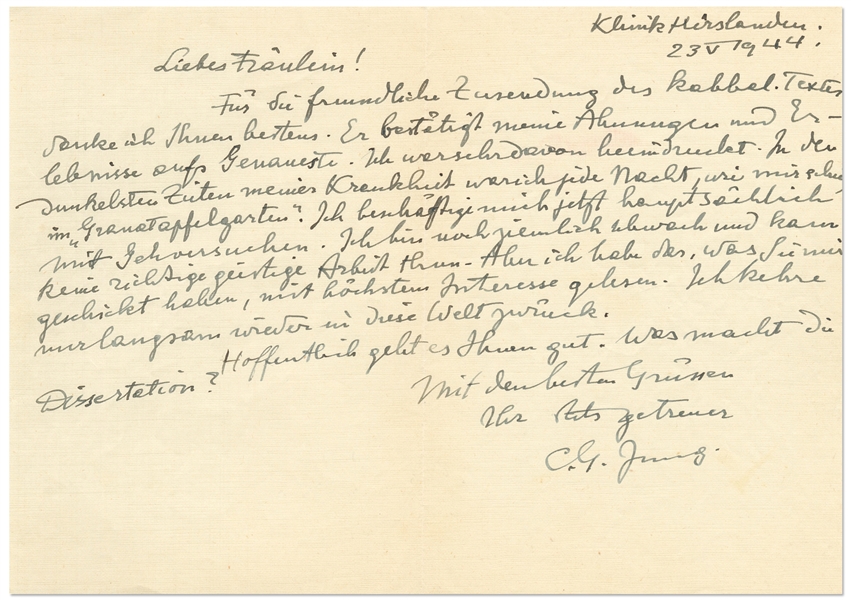 Klinik Hirslanden.
23 V 1944.
Liebes Fräulein!
Für die freundliche Zusendung des kabbal. Textes
danke ich Ihnen bestens. Er bestätigt meine Ahnungen und Er-
lebnisse aufs Genaueste. Ich war sehr davon beeindruckt. In den
dunkelsten Zeiten meiner Krankheit war ich jede Nacht, wie mir schien
im „Granatapfelgarten". Ich beschäftige mich jetzt hauptsächlich
mit Gehversuchen. Ich bin noch ziemlich schwach und kann
keine richtige geistige Arbeit thun. Aber ich habe das, was Sie mir
geschickt haben, mit höchstem Interesse gelesen. Ich kehre
nur langsam wieder in diese Welt zurück.
Hoffentlich geht es Ihnen gut. Was macht die
Dissertation?
Mit den besten Grüssen
Ihr stets getreuer
C.G. Jung.